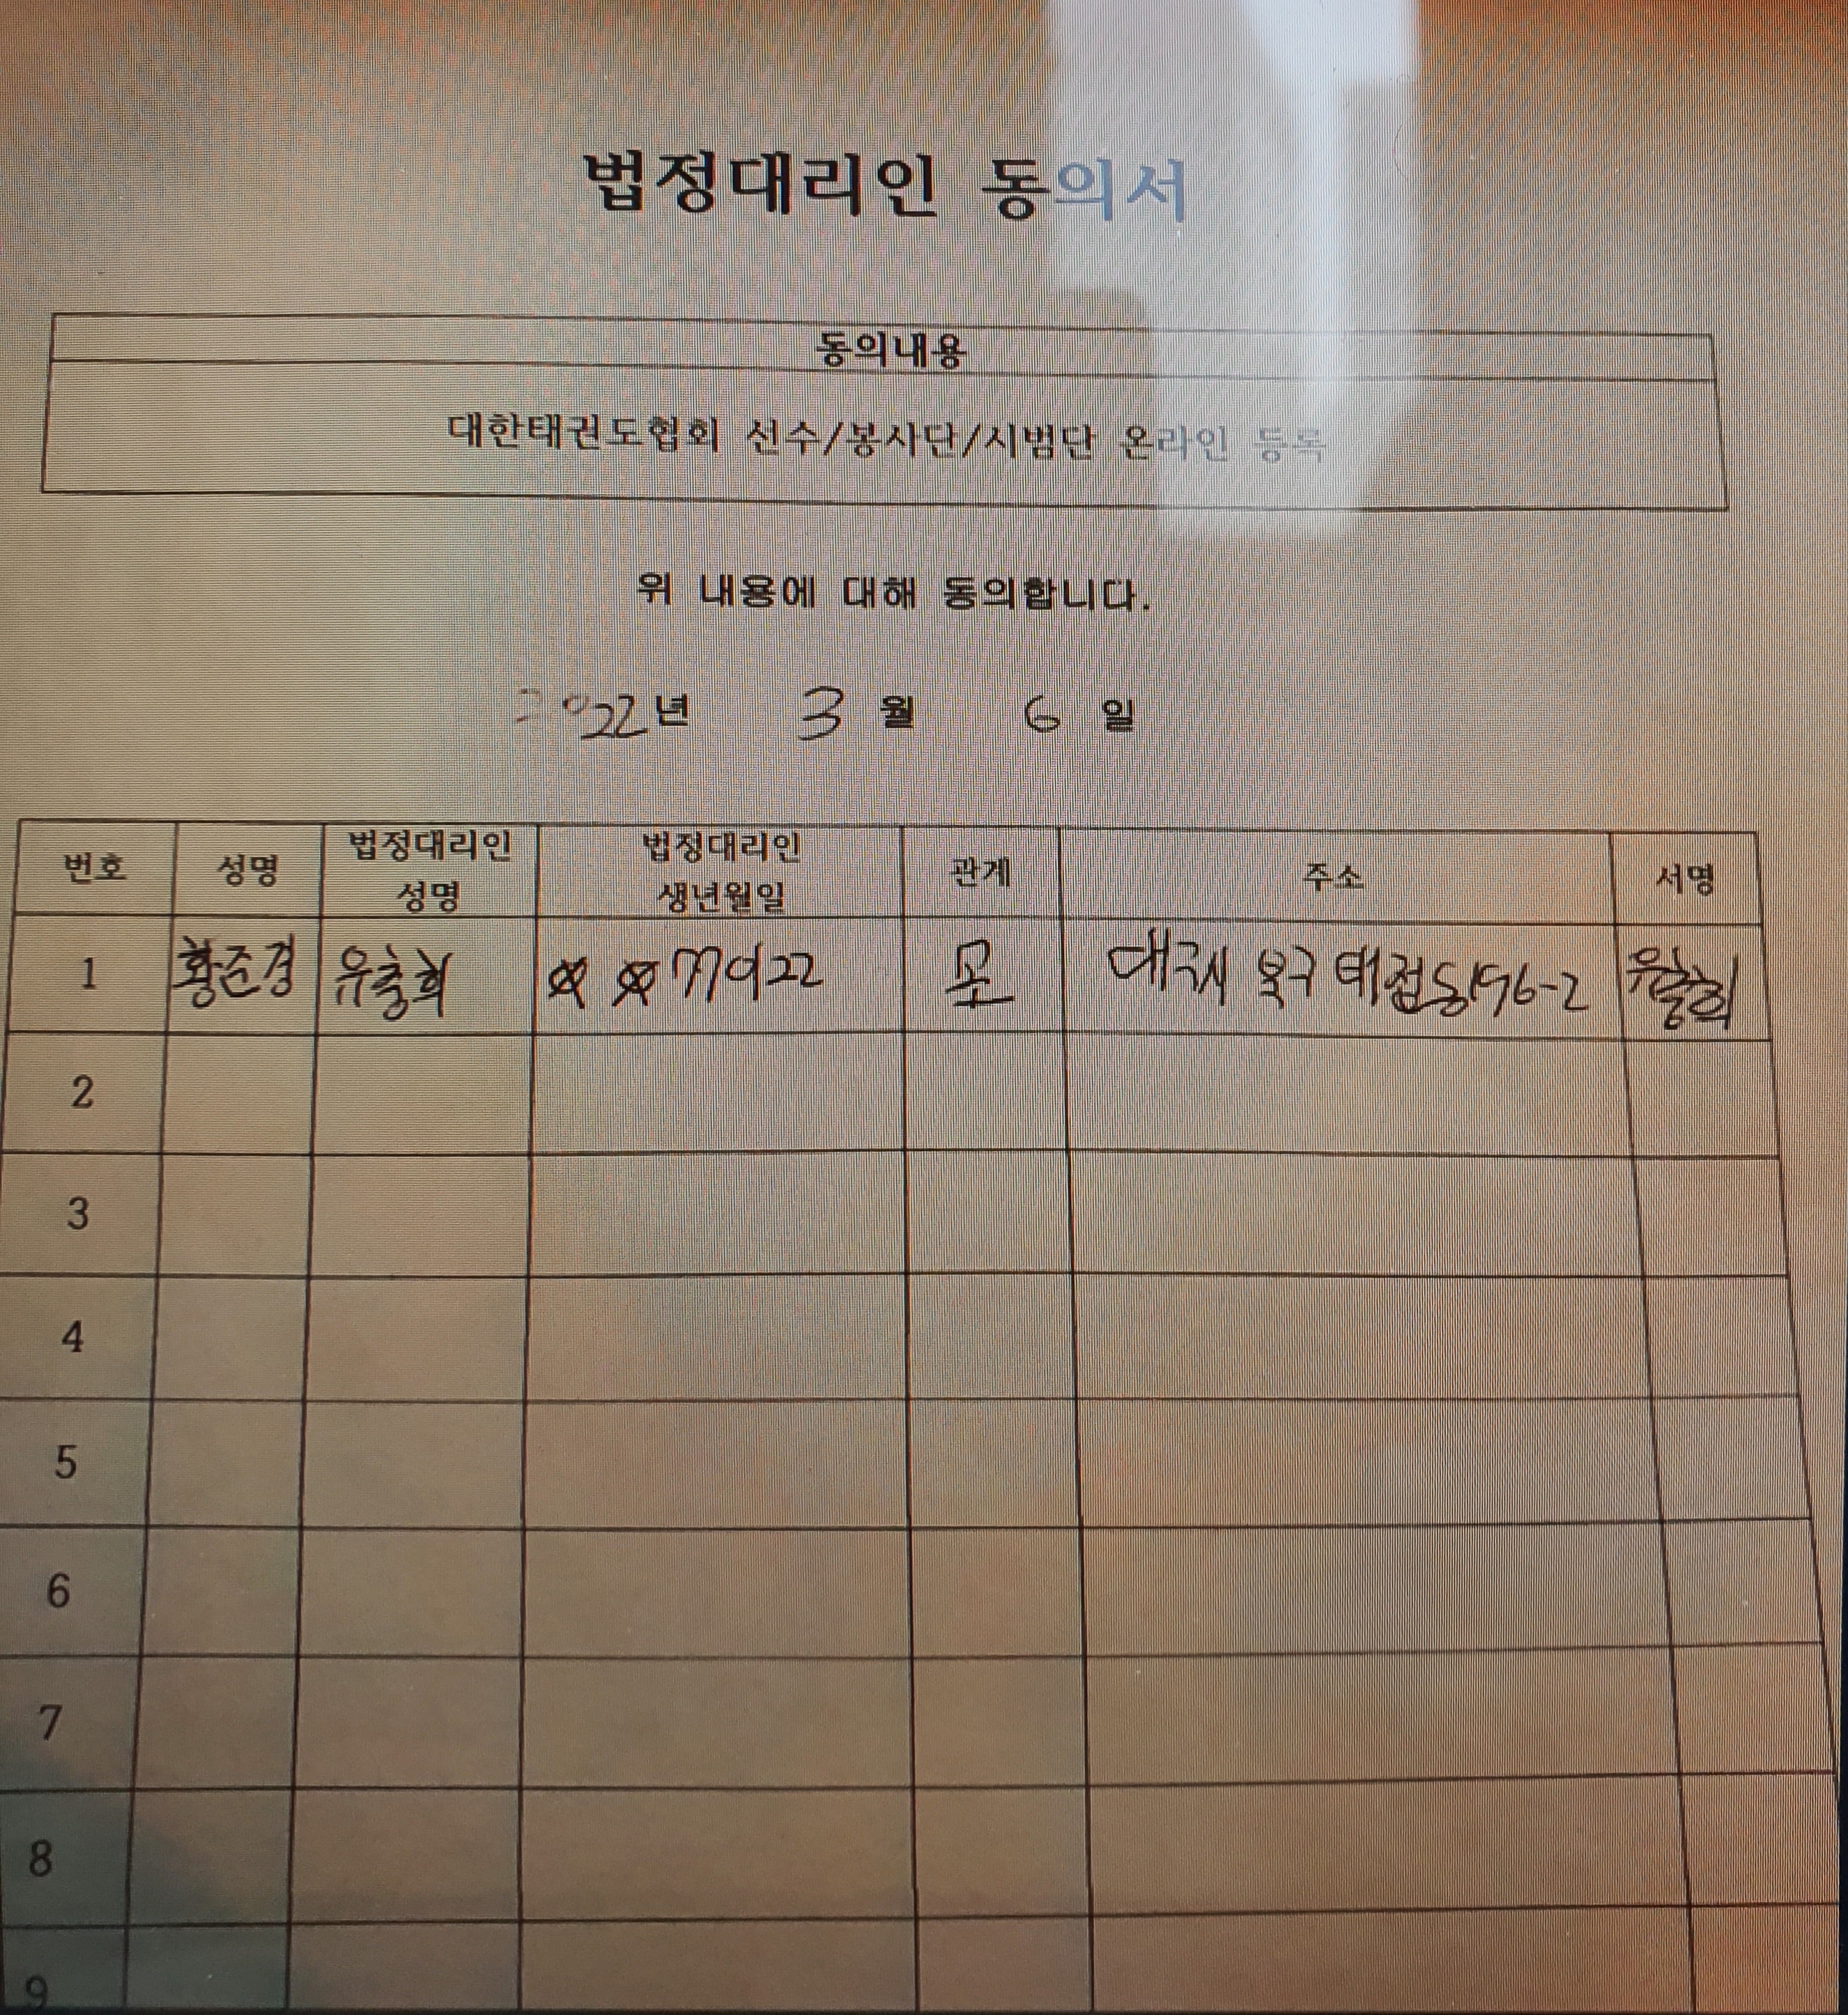 법정대리인 동의서
동의내용
대한태권도협회 선수/봉사단/시범단 온라인 등록
위 내용에 대해 동의합니다.
2022년 3월 6일
번호 성명 법정대리인 성명 법정대리인 생년월일 관계 주소 서명
1 황준경 770922 모 북구 196-2
2
3
4
5
6
7
8
9